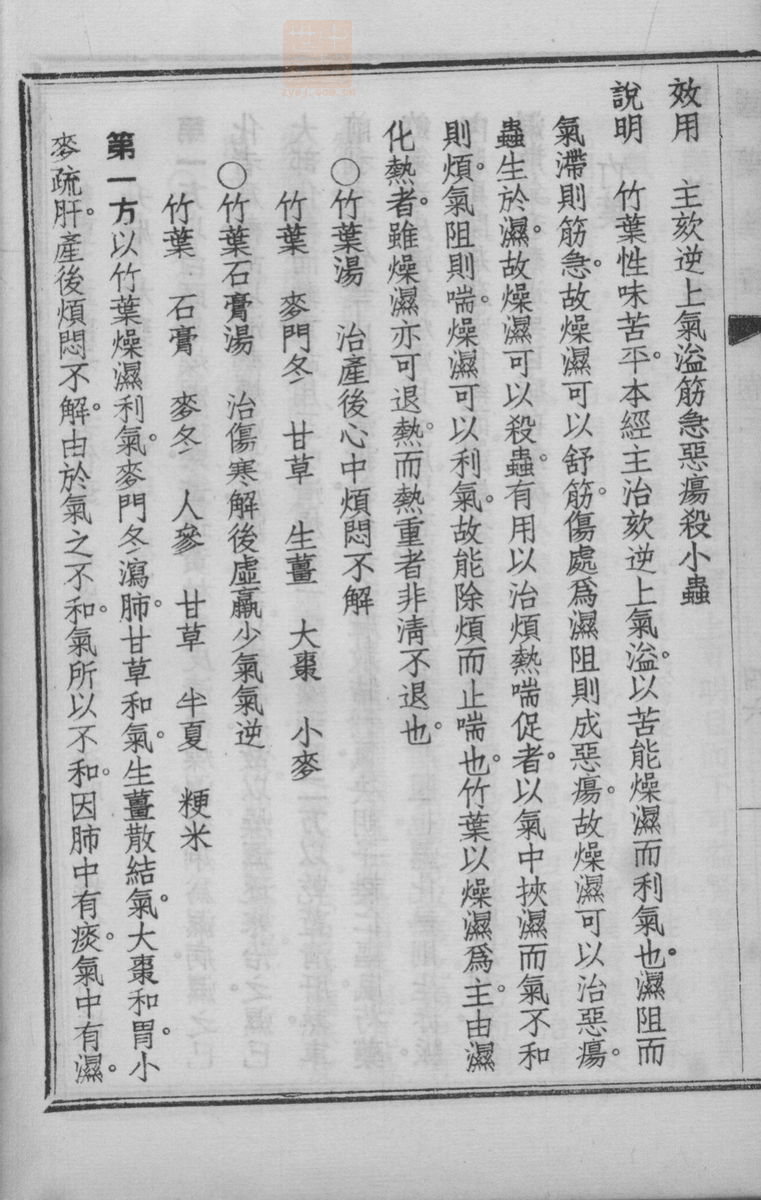 效用　主欬逆上氣溢筋急惡瘍殺小蟲
說明　竹葉性味苦平。本經主治欬逆上氣溢。以苦能燥濕而利氣也。濕阻而
氣滯則筋急。故燥濕可以舒筋。傷處爲濕阻則成惡瘍。故燥濕可以治惡瘍。
蟲生於濕。故燥濕可以殺蟲。有用以治煩熱喘促者。以氣中挾濕而氣不和
則煩。氣阻則喘。燥濕可以利氣。故能除煩而止喘也。竹葉以燥濕爲主。由濕
化熱者。雖燥濕亦可退熱。而熱重者非淸不退也。
○竹葉湯　治產後心中煩悶不解
竹葉　麥門冬　甘草　生薑　大棗　小麥
○竹葉石膏湯　治傷寒解後虛羸少氣氣逆
竹葉　石膏　麥冬　人參　甘草　半夏　粳米
第一方以竹葉燥濕利氣。麥門冬瀉肺。甘草和氣。生薑散結氣。大棗和胃。小
麥疏肝。產後煩悶不解。由於氣之不和。氣所以不和。因肺中有痰。氣中有濕。